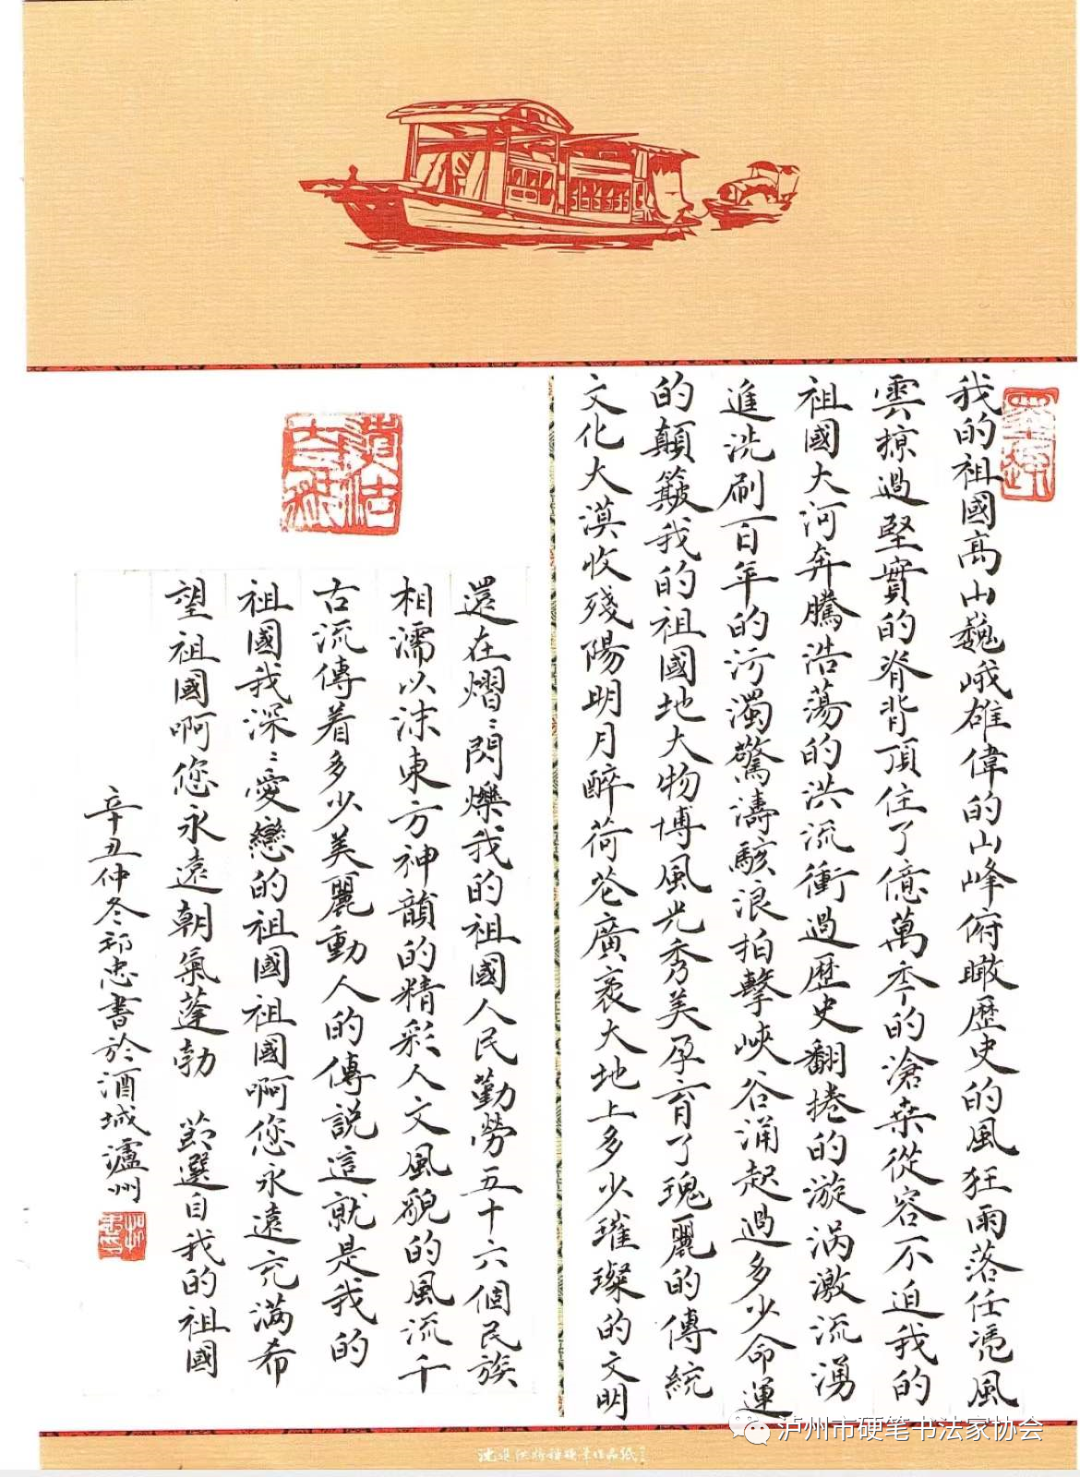 我的祖國高山巍峨雄偉的山峰俯瞰歷史的風狂雨落任憑風
雲掠過堅實的脊背頂住了億萬年的滄桑從容不迫我的
祖國大河奔騰浩蕩的洪流衝過歷史翻捲的漩涡激流湧
進洗刷百年的污濁驚濤駭浪拍擊峽谷涌起過多少命運
的顛簸我的祖國地大物博風光秀美孕育了瑰麗的傳統
文化大漠收殘陽明月醉荷花廣袤大地上多少璀璨的文明
還在熠〻閃爍我的祖國人民勤勞五十六個民族
相濡以沫東方神韻的精彩人文風貌的風流千
古流傳着多少美麗動人的傳説這就是我的
祖國我深〻愛戀的祖國祖國啊您永遠充满希
望祖國啊您永遠朝氣蓬勃 節選自我的祖國
辛丑仲冬邱忠書於酒城瀘州
泸州市硬笔书法家协会